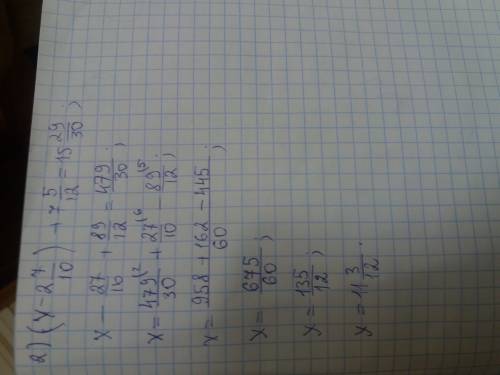 2) (x - 2 7/10) + 7 5/12 = 15 29/30;
x - 27/10 + 89/12 = 479/30;
x = 479/30 (2 + 27/10 (6 - 89/12 (5;
x = 958 + 162 - 445 / 60
x = 675/60;
x = 135/12;
x = 11 3/12.